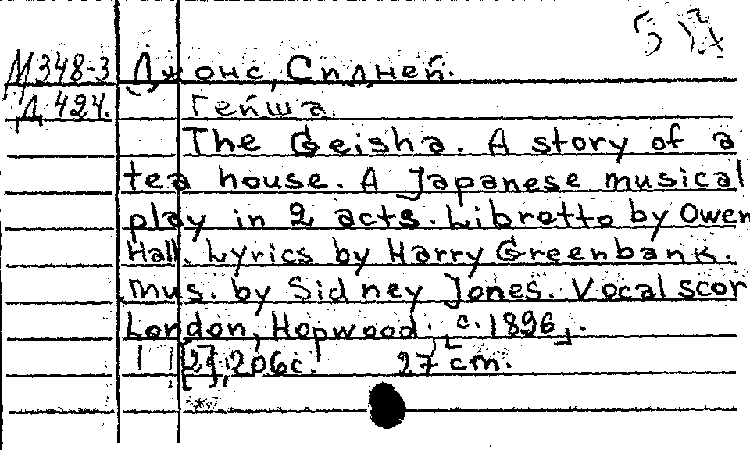 М348-3 Джонс, Сидней.
Д 424. Гейша
The Geisha. A story of a
tea house. A Japanese musical
play in 2 acts. Libretto by Owen
Hall. Lyrics by Harry Greenbank.
mus. by Sidney Jones. Vocal scor
London, Hopwood. [c. 1896].
[2], 206 с. 27 cm.